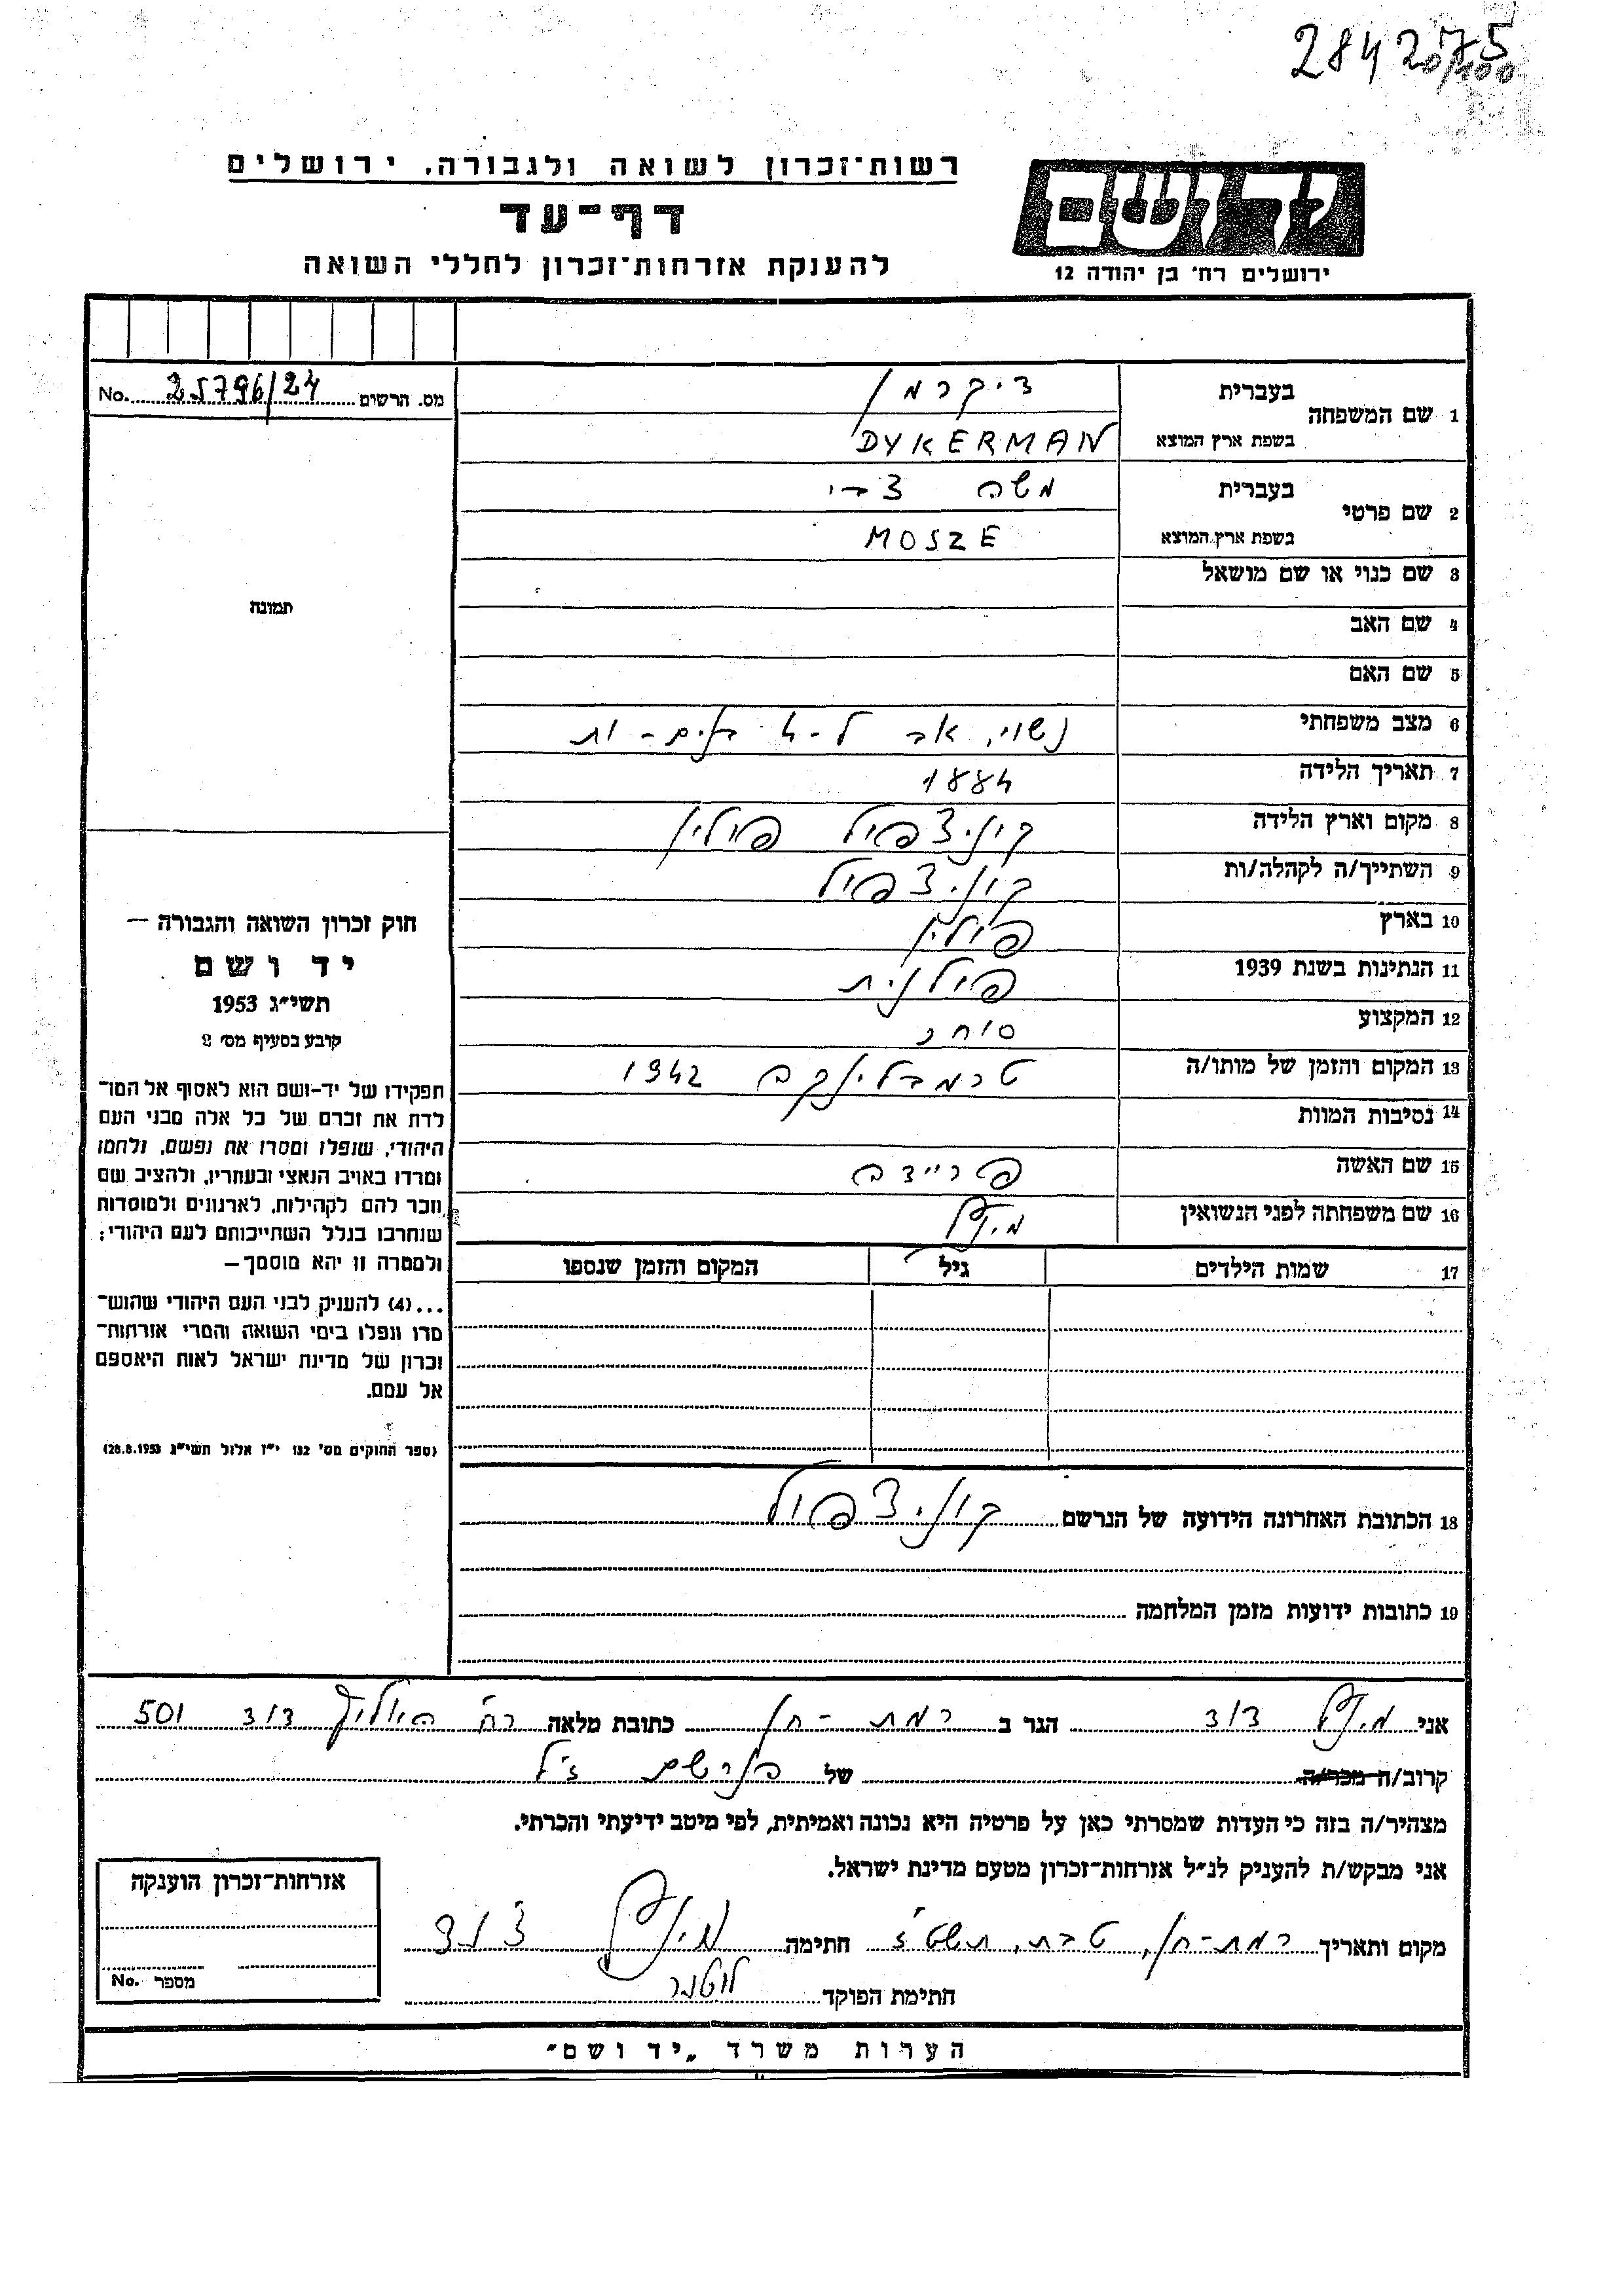 2842075
0/100
רשות־זכרון לשואה ולגבורה, ירושלים
יד ושם
דף־עד
להענקת אזרחות־זכרון לחללי השואה
ירושלים רח' בן יהודה 12
מס. הרשום 25796/24 No.
1 שם המשפחה בעברית דיקרמן
בשפת ארץ המוצא DYKERMAN
2 שם פרטי בעברית משה צבי
בשפת ארץ המוצא MOSZE
3 שם כנוי או שם מושאל
תמונה
4 שם האב
5 שם האם
6 מצב משפחתי נשוי, אב ל-4 בנים-ות
7 תאריך הלידה 1884
8 מקום וארץ הלידה קונ'צפול פולין
9 השתייך/ה לקהלה/ות קונ'צפול
10 בארץ פולין
11 הנתינות בשנת 1939 פולנית
12 המקצוע סוחר
13 המקום והזמן של מותו/ה טרמבלינקה 1942
14 נסיבות המוות
15 שם האשה פריידה
16 שם משפחתה לפני הנשואין
17 שמות הילדים גיל המקום והזמן שנספו
חוק זכרון השואה והגבורה —
יד ושם
תשי״ג 1953
קובע בסעיף מס' 2
תפקידו של יד-ושם הוא לאסוף אל המו־
לדת את זכרם של כל אלה מבני העם
היהודי, שנפלו ומסרו את נפשם, נלחמו
ומרדו באויב הנאצי ובעוזריו, ולהציב שם
וזכר להם לקהילות, לארגונים ולמוסדות
שנחרבו בגלל השתייכותם לעם היהודי;
ולמטרה זו יהא מוסמך —
...(4) להעניק לבני העם היהודי שהוש־
מדו ונפלו בימי השואה והמרי אזרחות־
זכרון של מדינת ישראל לאות היאספם
אל עמם.
(ספר החוקים מס' 132 י״ז אלול תשי״ג 28.8.1953)
18 הכתובת האחרונה הידועה של הנרשם קונ'צפול
19 כתובות ידועות מזמן המלחמה
אני דוד הגר ב רמת-חן כתובת מלאה רח' 501
קרוב/ה מכר/ה של הנרשם ז״ל
מצהיר/ה בזה כי העדות שמסרתי כאן על פרטיה היא נכונה ואמיתית, לפי מיטב ידיעתי והכרתי.
אני מבקש/ת להעניק לנ״ל אזרחות־זכרון מטעם מדינת ישראל.
מקום ותאריך רמת-חן, טבת, תשט״ז חתימה דוד
חתימת הפוקד
אזרחות־זכרון הוענקה
מספר No.
הערות משרד „יד ושם״